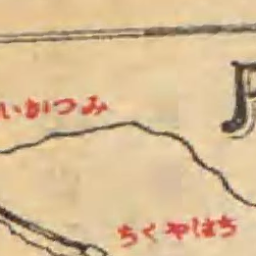 いかつみ
ちくやはち